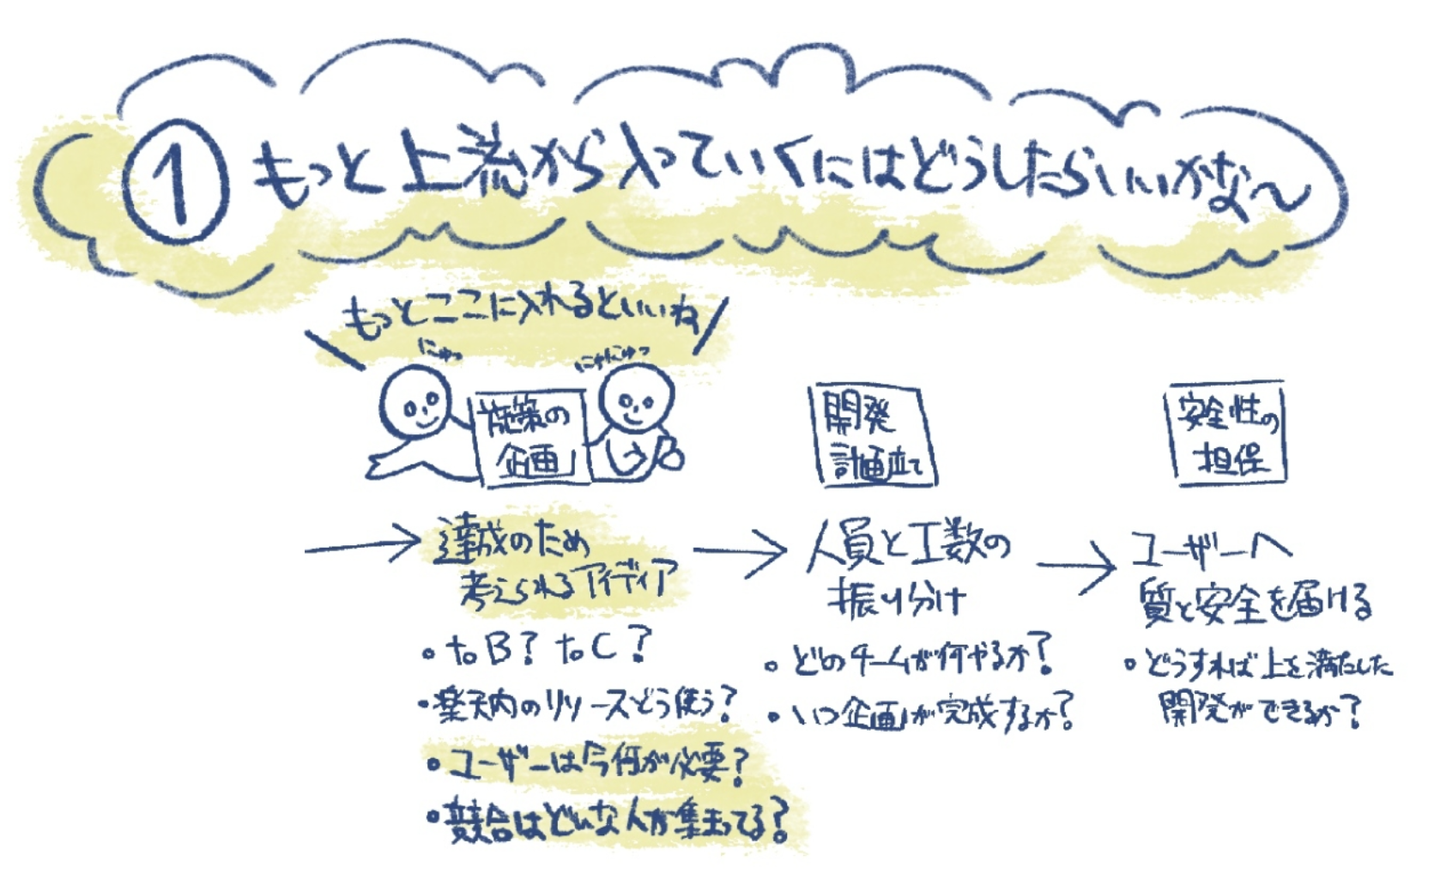 ① もっと上流から入っていくにはどうしたらいいかな〜
もっとここに入れるといいね
にゅっ
にゅにゅっ
施策の
企画
開発
計画立て
安全性の
担保
達成のため
考えられるアイディア
・to B? to C?
・楽天内のリソースどう使う?
・ユーザーは今何が必要?
・競合はどんな人が集まってる?
人員と工数の
振り分け
・どのチームが何やるか?
・いつ企画が完成するか?
ユーザーへ
質と安全を届ける
・どうすれば上を満たした
開発ができるか?